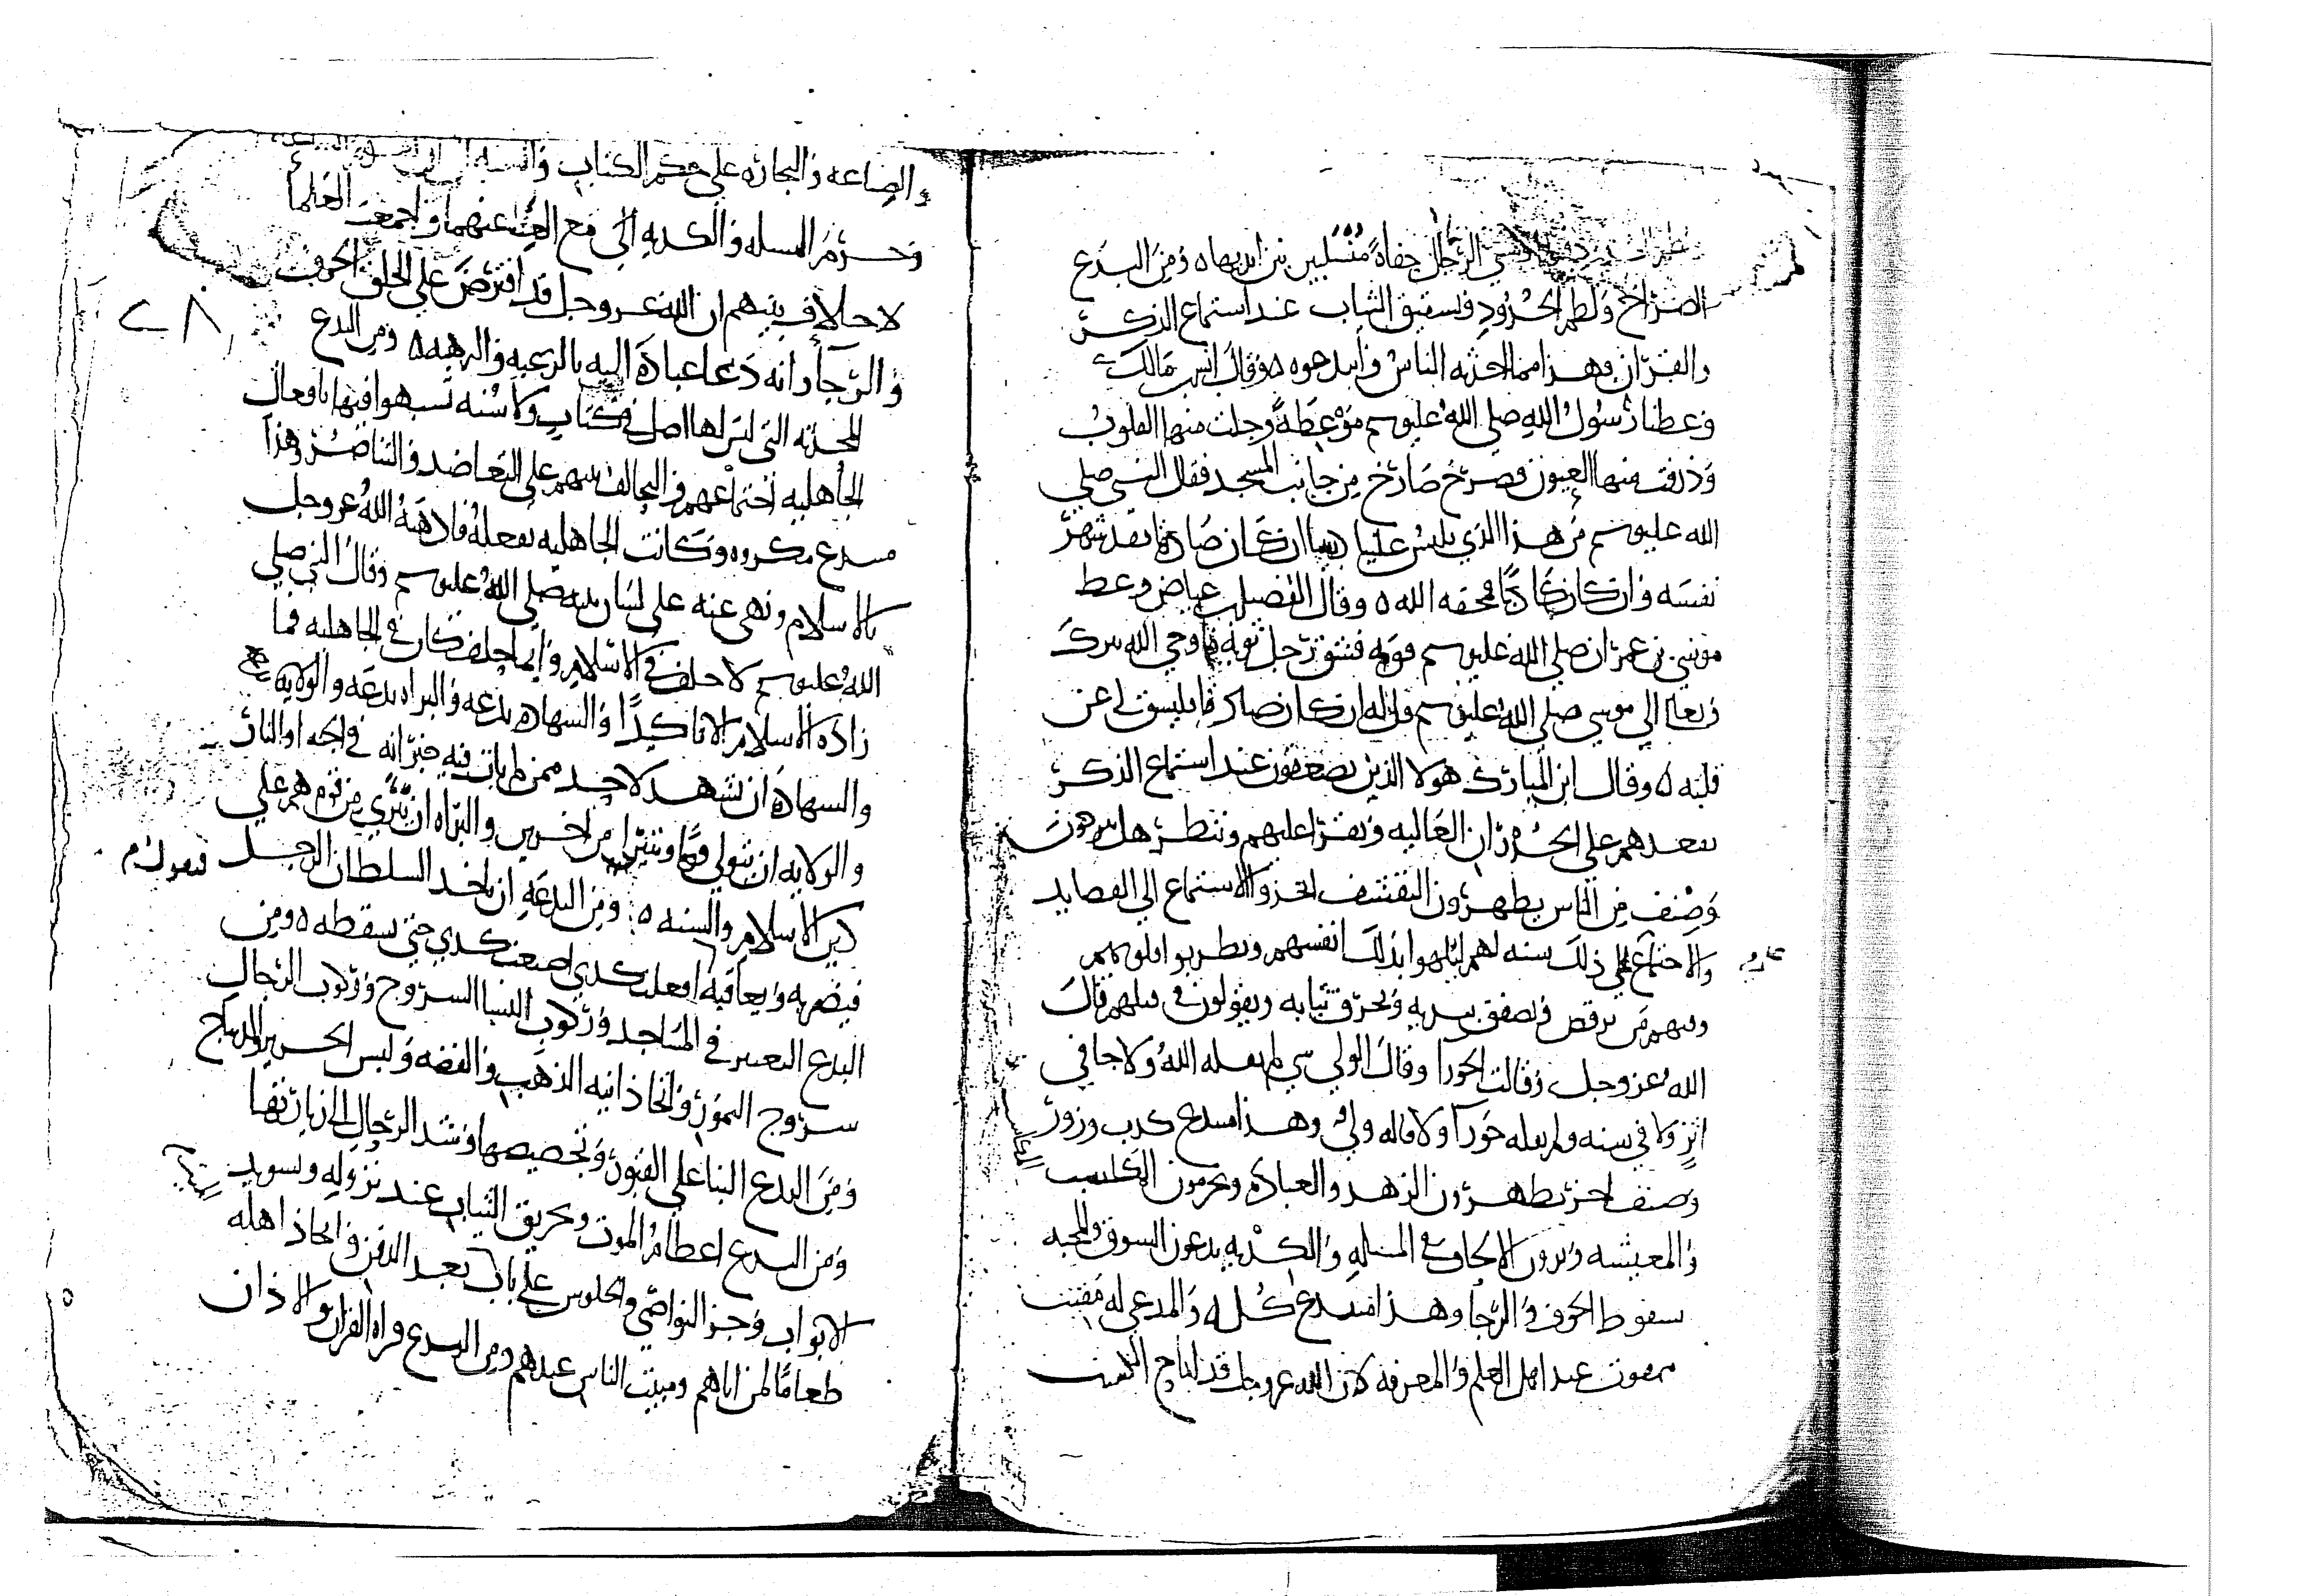 ومشي الرجال حفاة متسلبين بين ايديها ٥ ومن البدع
الصراخ ولطم الخدود وتشقيق الثياب عند استماع الذكر
والقران وهذا مما احدثه الناس وابتدعوه ٥ وقال انس بن مالك
وعظنا رسول الله صلى الله عليه وسلم موعظة وجلت منها القلوب
وذرفت منها العيون فصرخ صارخ من جانب المسجد فقال النبي صلى
الله عليه وسلم من هذا الذي يلبس علينا ديننا ان كان صادقا فقد شهر
نفسه وان كان كاذبا محقه الله ٥ وقال الفضيل بن عياض وعظ
موسى بن عمران صلى الله عليه وسلم قومه فشق رجل ثوبه فاوحى الله تبارك
وتعالى الى موسى صلى الله عليه وسلم قل له ان كان صادقا فليشق لي عن
قلبه ٥ وقال ابن المبارك هولا الذين يصعقون عند استماع الذكر
نقعدهم على الجدران العاليه ونقرا عليهم وننظر هل يتردون
وصنف من الناس يظهرون التقشف اتخذوا الاستماع الى القصايد
والاجتماع على ذلك سنه لهم ليلهوا بذلك انفسهم ويطربوا قلوبهم
ومنهم من يرقص ويصفق بيديه ويخرق ثيابه ويقولون في قيلهم قال
الله عز وجل وقالت الحورا وقال الولي شي لم يقله الله ولا جا في
اثر ولا في سنه ولم يقله حورا ولا قاله ولي وهذا مبتدع كذب وزور
وصنف اخر يظهرون الزهد والعباده ويحرمون المكاسب
والمعيشه ويرون الالحاف في المسله والكديه يدعون الشوق والمحبه
سقوط الخوف والرجا وهذا مبتدع كله والمدعي له مقيت
ممقوت عند اهل العلم والمعرفه لان الله عز وجل قد اباح الكسب
والصناعه والتجاره على حكم الكتاب والسنه
وحرم المسله والكديه الى مع الغنا عنهما واجمعت العلما
لا خلاف بينهم ان الله عز وجل قد افترض على الخلق الخوف
والرجا وانه دعا عباده اليه بالرغبه والرهبه ٥ ومن البدع
المحدثه التي ليس لها اصل في كتاب ولا سنه تشبهوا فيها بافعال
الجاهليه اجتماعهم والتحالف بينهم على التعاضد والتناصر وهذا
مبتدع مكروه وكانت الجاهليه تفعله فاذهبه الله عز وجل
بالاسلام ونهى عنه على لسان نبيه صلى الله عليه وسلم وقال النبي صلى
الله عليه وسلم لا حلف في الاسلام وايما حلف كان في الجاهليه فما
زاده الاسلام الا تاكيدا والشهاده بدعه والبراه بدعه والولايه
والشهاده ان تشهد لاحد ممن لم يات فيه خبر انه في الجنه او النار
والولايه ان تتولى قوما وتتبرا من اخرين والبراه ان تتبرى من قوم هم على
دين الاسلام والسنه ٥ ومن البدعه ان ياخذ السلطان الرجل
فيضربه ويعاقبه افعلت كدي اصنعت كدي حتى يسقطه ٥ ومن
البدع في المساجد وركوب النسا السروج وركوب الرجال
سروج النمور واتخاذ انيه الذهب والفضه ولبس الحرير والديباج
ومن البدع البنا على القبور وتجصيصها وشد الرحال الى زيارتها
ومن البدع اعظام الموت وتخريق الثياب عند نزوله وتسويد
الابواب وجز النواصي والجلوس على باب بعد الدفن واتخاذ اهله
طعاما لمن اتاهم ومبيت الناس عندهم ومن البدع قراه القران والاذان
٢٨